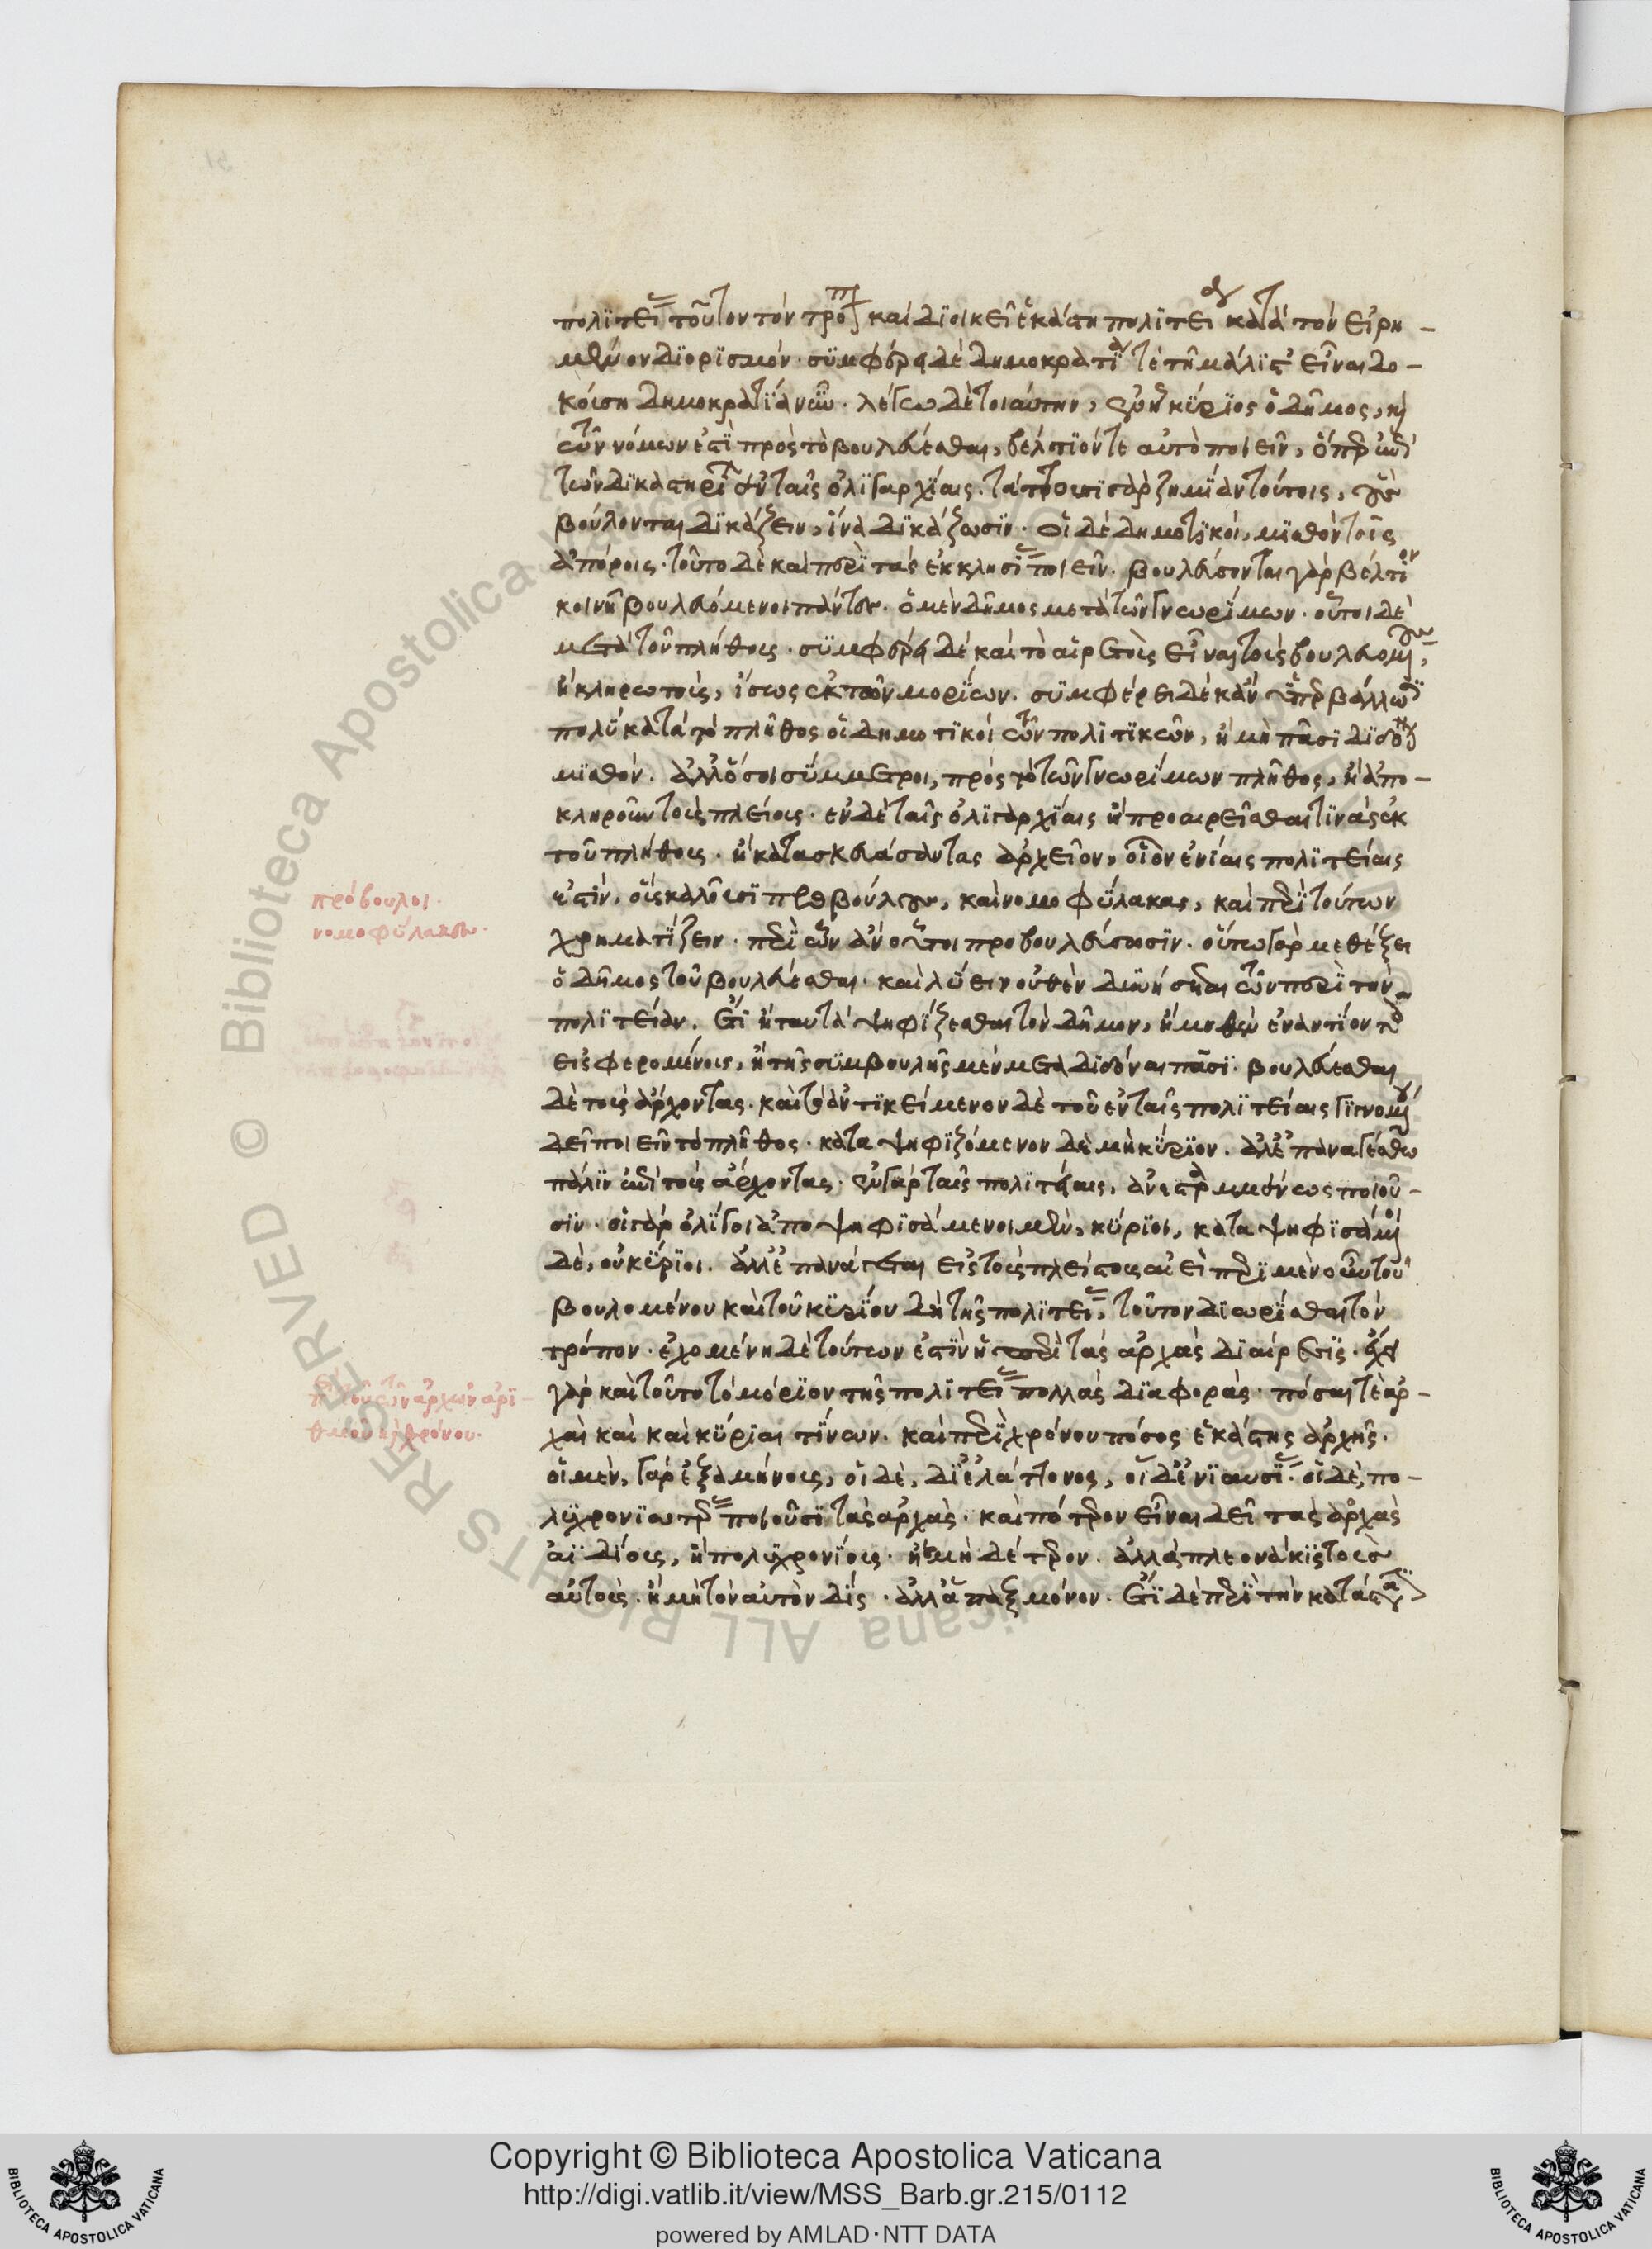 πολιτείας τοῦτον τὸν τρόπον καὶ διοικεῖ ἑκάστη πολιτεία κατὰ τὸν εἰρη-
μένον διορισμόν. συμφέρει δὲ δημοκρατία τε τῆ μάλιστ' εἶναι δο-
κούση δημοκρατία νῦν. λέγω δὲ τοιαύτην, ἐν ἧ κύριος ὁ δῆμος, καὶ
τῶν νόμων ἐστὶ πρὸς τὸ βουλεύεσθαι, βέλτιόν τε αὐτὸ ποιεῖν, ὅπερ ἐπὶ
τῶν δικαστηρίων ἐν ταῖς ὀλιγαρχίαις. τάττουσι γὰρ ζημίαν τούτοις, οὓς
βούλονται δικάζειν, ἵνα δικάζωσιν. οἱ δὲ δημοτικοὶ, μισθὸν τοῖς
ἀπόροις. τοῦτο δὲ καὶ περὶ τὰς ἐκκλησίας ποιεῖν. βουλεύσονται γὰρ βέλτιον
κοινῆ βουλευόμενοι πάντες. ὁ μὲν δῆμος μετὰ τῶν γνωρίμων. οὗτοι δὲ
μετὰ τοῦ πλήθους. συμφέρει δὲ καὶ τὸ αἱρετοὺς εἶναι τοὺς βουλευομένους,
ἢ κληρωτοὺς, ἴσως ἐκ τῶν μορίων. συμφέρει δὲ κἂν ὑπερβάλλωσι
πολὺ κατὰ τὸ πλῆθος οἱ δημοτικοὶ τῶν πολιτικῶν, ἢ μὴ πᾶσι διδόναι
μισθόν. ἀλλ' ὅσοι σύμμετροι, πρὸς τὸ τῶν γνωρίμων πλῆθος, ἢ ἀπο-
κληροῦν τοὺς πλείους. ἐν δὲ ταῖς ὀλιγαρχίαις ἢ προαιρεῖσθαι τινὰς ἐκ
τοῦ πλήθους. ἢ κατασκευάσαντας ἀρχεῖον, οἷον ἐνίαις πολιτείαις
ἐστὶν, οὓς καλοῦσι προβούλους, καὶ νομοφύλακας, καὶ περὶ τούτων
χρηματίζειν. περὶ ὧν ἂν οὗτοι προβουλεύσωσιν. οὕτω γὰρ μεθέξει
ὁ δῆμος τοῦ βουλεύεσθαι. καὶ λύειν οὐθὲν δυνήσεται τῶν περὶ τὴν
πολιτείαν. ἔτι ἢ ταυτὰ ψηφίζεσθαι τὸν δῆμον, ἢ μηθὲν ἐναντίον τοῖς
εἰσφερομένοις, ἢ τῆς συμβουλῆς μὲν μεταδιδόναι πᾶσι. βουλεύεσθαι
δὲ τοὺς ἄρχοντας. καὶ τὸ ἀντικείμενον δὲ τοῦ ἐν ταῖς πολιτείαις γιγνομένου
δεῖ ποιεῖν τὸ πλῆθος. καταψηφιζόμενον δὲ μὴ κύριον. ἀλλ' ἐπαναγέσθω
πάλιν ἐπὶ τοὺς ἄρχοντας. ἐν γὰρ ταῖς πολιτείαις, ἀνεστραμμένως ποιοῦ-
σιν. οἱ γὰρ ὀλίγοι ἀποψηφισάμενοι μὲν, κύριοι, καταψηφισάμενοι
δὲ, οὐ κύριοι. ἀλλ' ἐπανάγεται εἰς τοὺς πλείστους αἰεὶ περὶ μὲν οὖν τοῦ
βουλομένου καὶ τοῦ κυρίου δὴ τῆς πολιτείας, τοῦτον διωρίσθαι τὸν
τρόπον. ἐχομένη δὲ τούτων ἐστὶν ἡ περὶ τὰς ἀρχὰς διαίρεσις. ἔχει
γὰρ καὶ τοῦτο τὸ μόριον τῆς πολιτείας πολλὰς διαφοράς. πόσαι τε ἀρ-
χαὶ καὶ καὶ κύριαι τίνων. καὶ περὶ χρόνου πόσος ἑκάστης ἀρχῆς.
οἱ μὲν, γὰρ ἑξαμήνους, οἱ δὲ, δι' ἐλάττονος, οἱ δ' ἐνιαυσίας. οἱ δὲ, πο-
λυχρονιωτέρας ποιοῦσι τὰς ἀρχάς. καὶ πότερον εἶναι δεῖ τὰς ἀρχὰς
ἀϊδίους, ἢ πολυχρονίους. ἢ μηδέτερον. ἀλλὰ πλεονάκις τοὺς
αὐτοὺς. ἢ μὴ τὸν αὐτὸν δὶς. ἀλλ' ἅπαξ μόνον. ἔτι δὲ περὶ τὴν κατάστασιν
πρόβουλοι.
νομοφύλακες.
περὶ τοῦ τῶν ἀρχῶν ἀρι-
θμοῦ καὶ χρόνου.
Copyright © Biblioteca Apostolica Vaticana
http://digi.vatlib.it/view/MSS_Barb.gr.215/0112
powered by AMLAD·NTT DATA
BIBLIOTECA APOSTOLICA VATICANA
BIBLIOTECA APOSTOLICA VATICANA
© Biblioteca Apostolica Vaticana ALL RIGHTS RESERVED